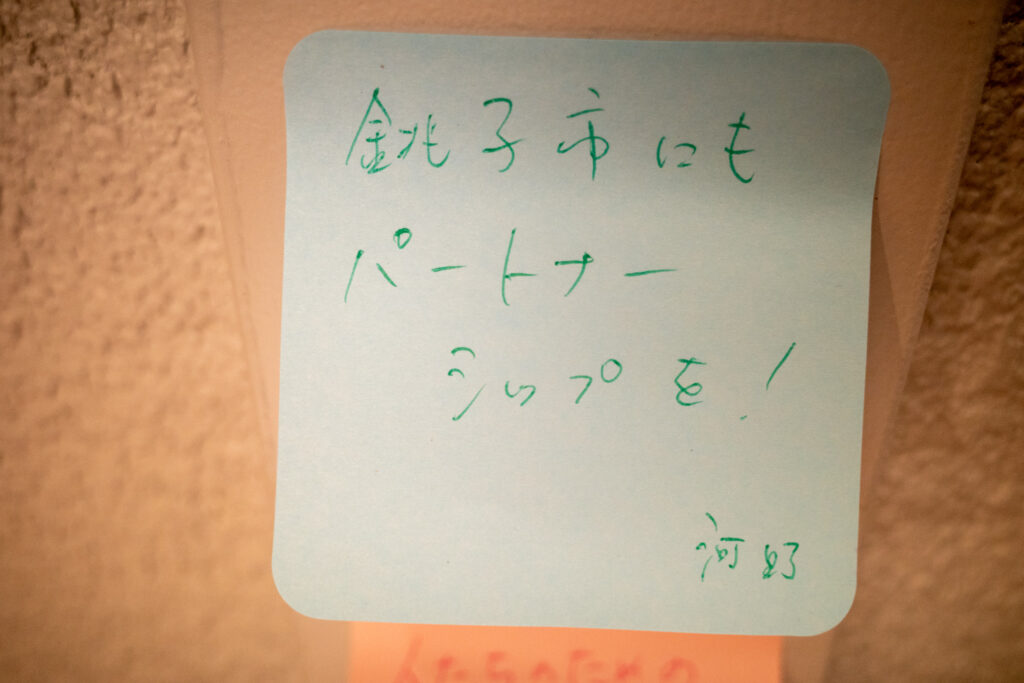 銚子市にも
パートナー
シップを!
河野